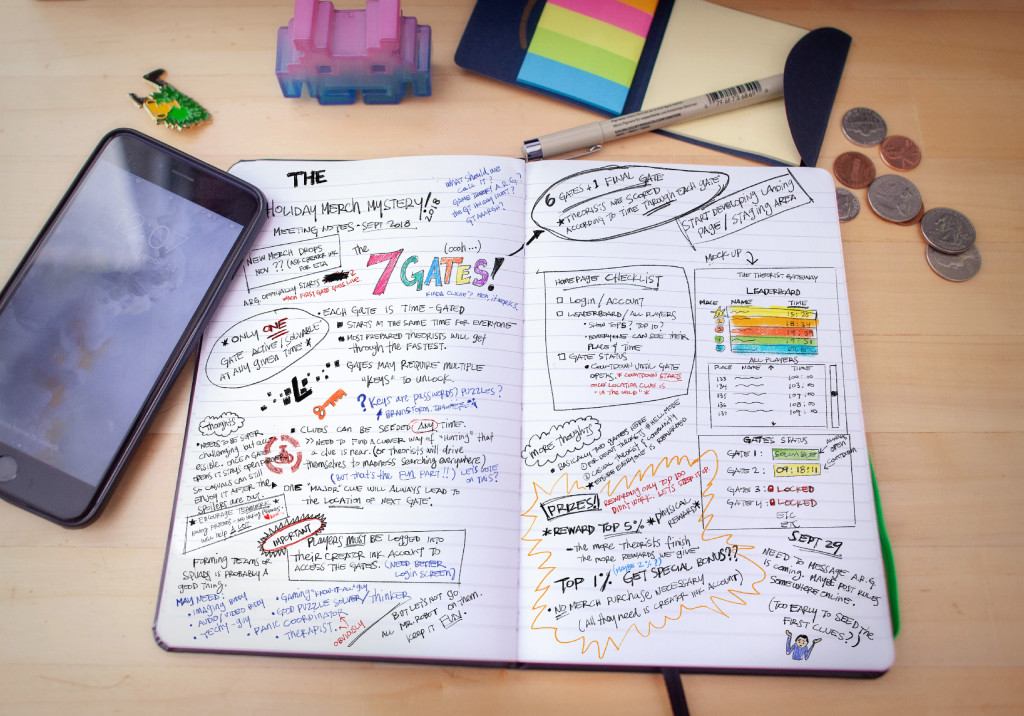 THE
HOLIDAY MERCH MYSTERY! 2018
MEETING NOTES - SEPT 2018.
WHAT SHOULD WE
CALL IT?
GAME THEORY A.R.G.?
THE GT HOLIDAY HUNT?
GTAMEGH?
NEW MERCH DROPS
NOV ?? (ASK CREATOR INK
FOR ETA
A.R.G. OFFICIALLY STARTS
WHEN FIRST GATE GOES LIVE
The
(oooh...)
7 GATES!
KINDA CLICHÉ? MEH. IT WORKS.
• EACH GATE IS TIME-GATED
STARTS AT THE SAME TIME FOR EVERYONE
MOST PREPARED THEORISTS WILL GET
THROUGH THE FASTEST.
* ONLY ONE
GATE ACTIVE/SOLVABLE
AT ANY GIVEN TIME *
GATES MAY REQUIRE MULTIPLE
"KEYS" TO UNLOCK.
? KEYS ARE PASSWORDS? PUZZLES?
BRAINSTORM
thoughts
• NEEDS TO BE SUPER
CHALLENGING BUT ACC-
ESSIBLE. ONCE A GATE
OPENS IT STAYS OPEN
SO CASUALS CAN STILL
ENJOY IT AFTER THE
SPOILERS ARE OUT.
• CLUES CAN BE SEEDED ANY TIME.
?? NEED TO FIND A CLEVER WAY OF "HINTING" THAT
A CLUE IS NEAR. (OR THEORISTS WILL DRIVE
THEMSELVES TO MADNESS SEARCHING EVERYWHERE)
(BUT THAT'S THE FUN PART!!) LET'S VOTE
ON THIS?
ONE "MAJOR" CLUE WILL ALWAYS LEAD TO
THE LOCATION OF NEXT GATE.
* ENCOURAGE TEAMWORK *
WILL HELP A LOT
IMPORTANT
PLAYERS MUST BE LOGGED INTO
THEIR CREATOR INK ACCOUNT TO
ACCESS THE GATES. (NEED BETTER
LOGIN SCREEN)
FORMING TEAMS OR
SQUADS IS PROBABLY A
GOOD THING.
MAY NEED:
• IMAGING BUDDY
• AUDIO/VIDEO BUDDY
• TECHY-GUY
• GAMING "KNOW-IT-ALL" GUY
• GOD PUZZLE SOLVER/THINKER
• PANIC COORDINATOR
• THERAPIST.
OBVIOUSLY
BUT LET'S NOT GO
ALL MR. ROBOT ON THEM.
KEEP IT FUN!
6 GATES + 1 FINAL GATE
* THEORISTS ARE SCORED
ACCORDING TO TIME THROUGH EACH GATE
START DEVELOPING LANDING
PAGE / STAGING AREA
MOCK UP
HOMEPAGE CHECKLIST
LOGIN / ACCOUNT
LEADERBOARD / ALL PLAYERS
• SHOW TOP 5? TOP 10?
• EVERYONE CAN SEE THEIR
PLACE & TIME
GATE STATUS
• COUNTDOWN UNTIL GATE
OPENS. * COUNTDOWN STARTS
ONCE LOCATION CLUE IS
"IN THE WILD" *
THE THEORIST GATEWAY
LEADERBOARD
PLACE NAME TIME
1 15:25
2 18:34
3 19:39
4
5
ALL PLAYERS
PLACE NAME TIME
133
134
135
136
137
GATES STATUS
GATE 1: SOLVABLE
GATE 2: 09:18:11
GATE 3: LOCKED
GATE 4: LOCKED
ETC
ETC
MORE THOUGHTS
PRIZES!!
REWARDING ONLY TOP 100
DIDN'T WORK. LET'S STEP IT UP
* REWARD TOP 5% * PHYSICAL
REWARDS *
- THE MORE THEORISTS FINISH
THE MORE REWARDS WE GIVE
(MAYBE 2%?)
TOP 1% GET SPECIAL BONUS??
• NO MERCH PURCHASE NECESSARY
(ALL THEY NEED IS CREATOR INK ACCOUNT)
SEPT 29
NEED TO MESSAGE A.R.G.
IS COMING. MAYBE POST RULES
SOMEWHERE ONLINE.
(TOO EARLY TO SEED THE
FIRST CLUES?)